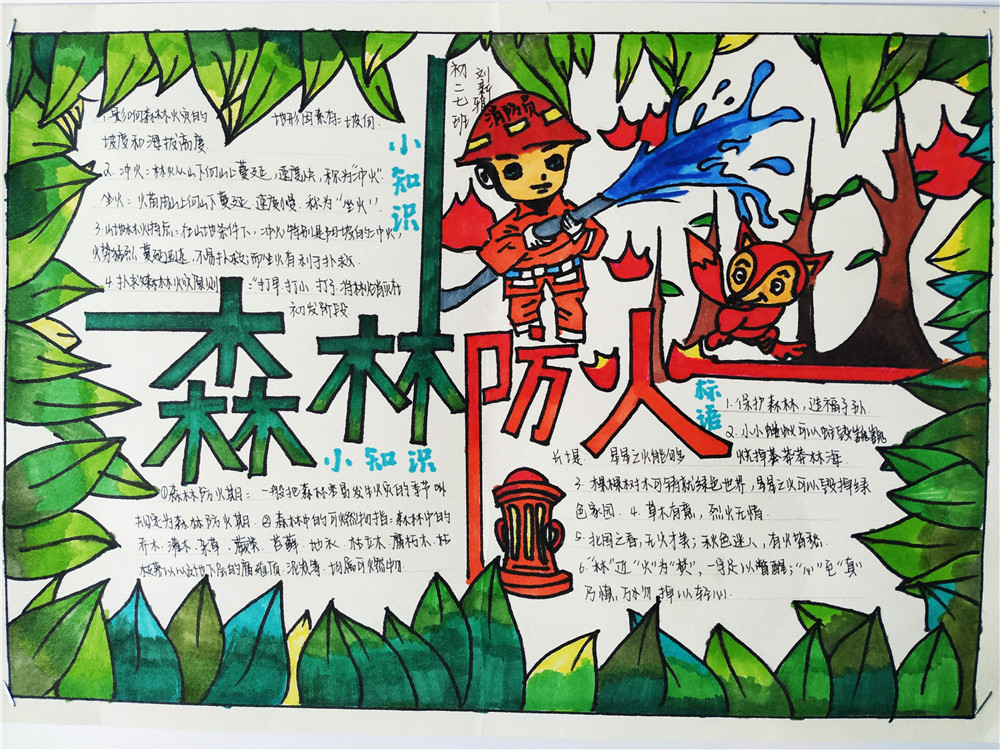 1.影响森林火灾的 地形因素有：坡向.
坡度和海拔高度
2. 冲火：林火从山下向山上蔓延，速度快，称为“冲火”.
坐火：火苗由山上向山下蔓延 速度慢. 称为“坐火”
3.山地林火特点：在山地条件下，冲火特别是阳坡的上冲火，
火势猛烈，蔓延迅速，不易扑救；而坐火有利于扑救.
4. 扑救森林火灾原则：“打早.打小.打了.将林火消灭在
初发阶段
小知识
初二七班
刘
消防员
森林防火
小知识
①森林防火期： 一般把森林容易发生火灾的季节叫
规定为森林防火期. ②森林中的可燃物指：森林中的
乔木.灌木.杂草.蕨类.苔藓.地衣.枯立木.腐朽木.枯
枝落叶以及地下层的腐殖质.泥炭等.均属可燃物.
标语
1. 保护森林，造福子孙.
2. 小小 可以
长堤. 星星之火能够 烧掉 林海.
3. 棵棵树木可铸就绿色世界，星星之火可以毁掉绿
色家园. 4. 草木有情，烈火无情.
5. 北国之春，无火才美；秋色迷人，有火皆愁.
6.“林”近“火”为“焚”，一字足以警醒；“心”至“真”
乃慎，万勿掉以轻心.